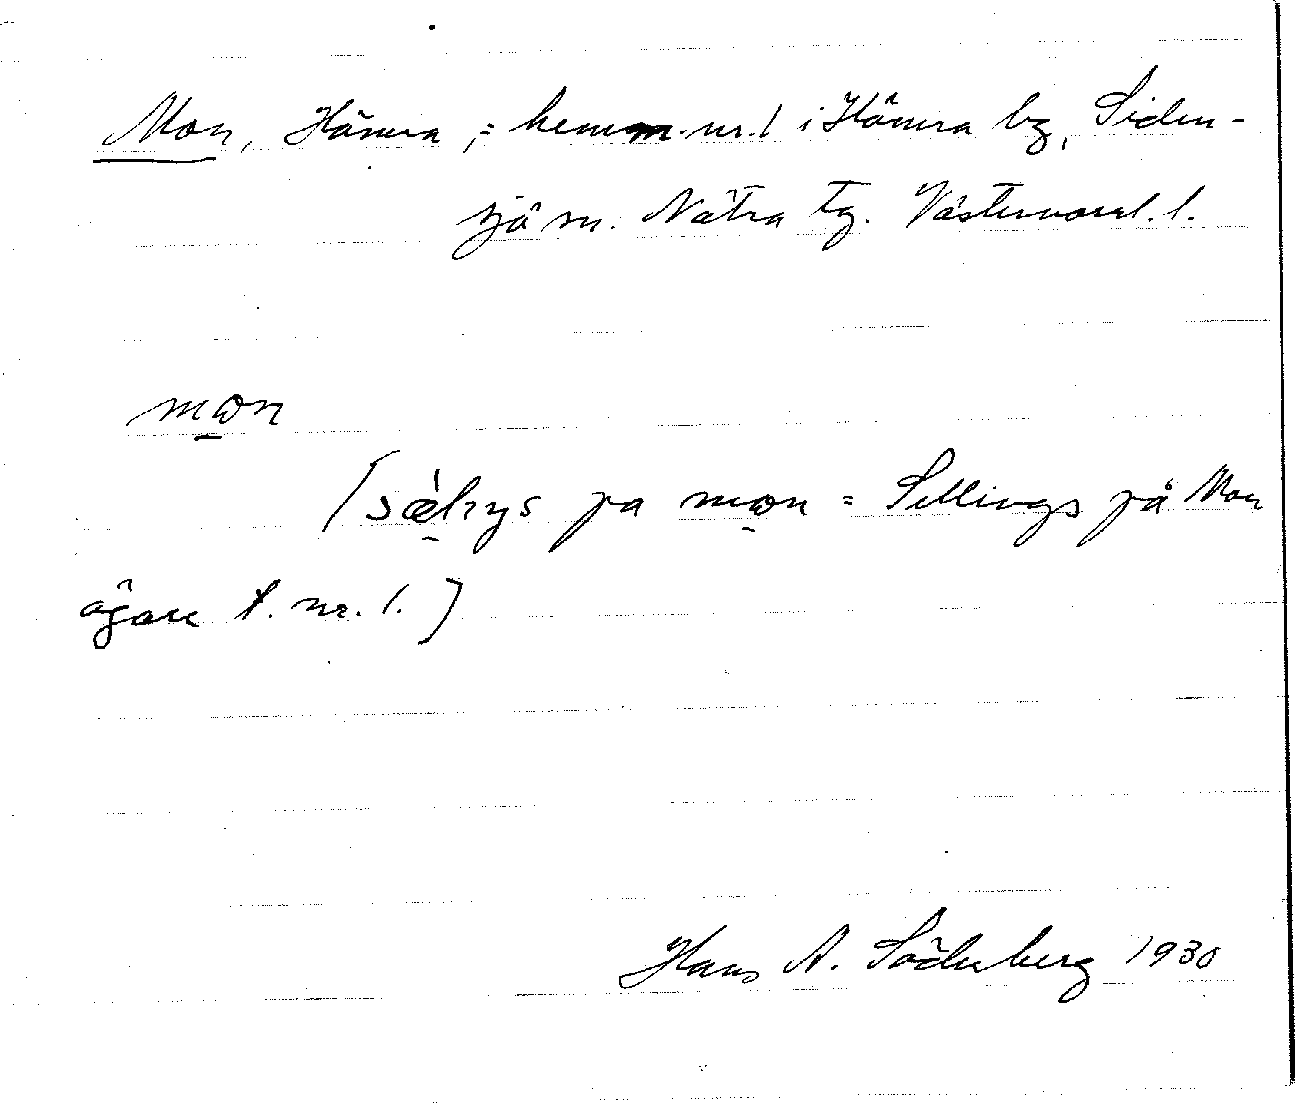 Mon, Hämra, = hemm. nr. 1 i Hämra by, Siden-
sjö sn. Nätra tg. Västernorrl. l.
mɷn
( pa mɷn = Sellings på Mon
ägare t. nr. 1. )
Hans A. Söderberg 1930